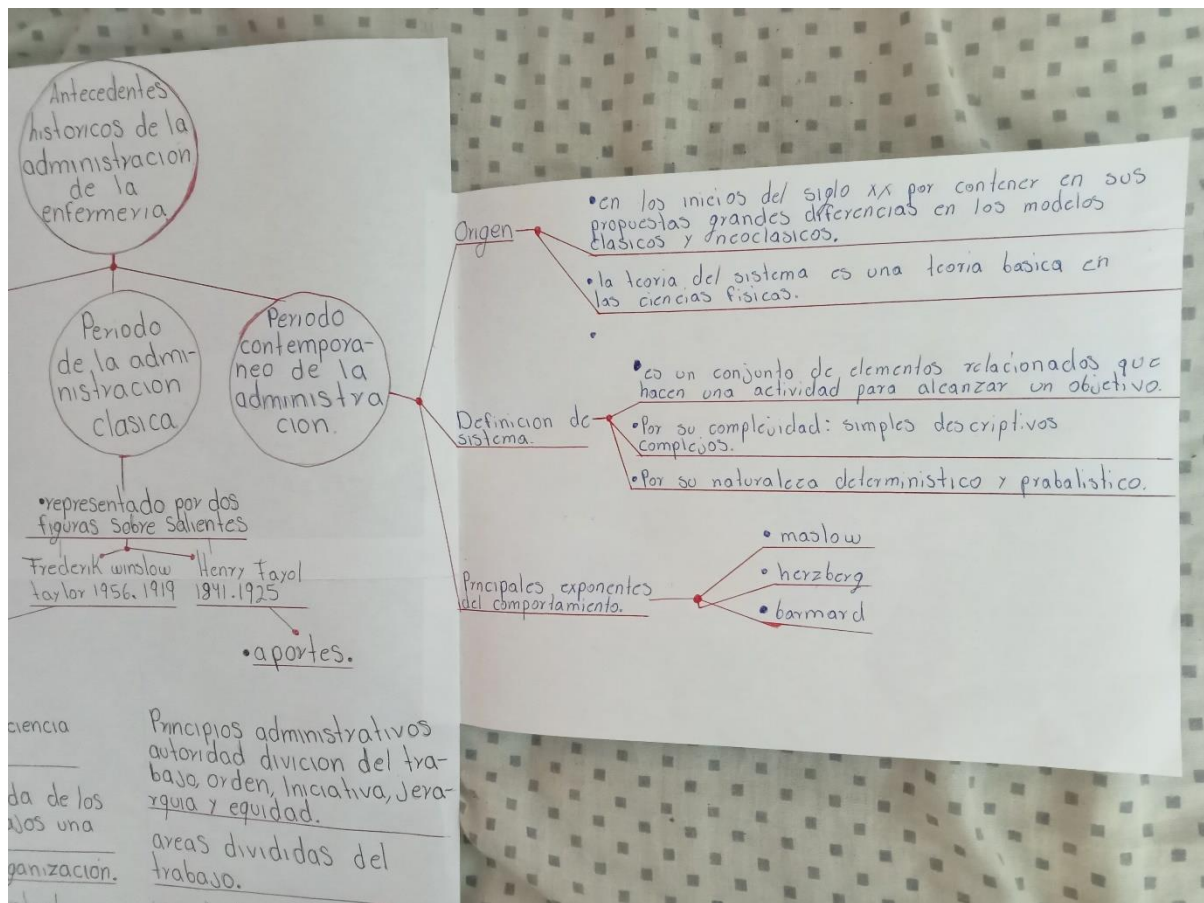 Antecedentes
historicos de la
administracion
de la
enfermeria
Periodo
de la admi-
nistracion
clasica
•representado por dos
figuras sobre salientes
Frederik winslow
taylor 1956. 1919
Henry Fayol
1841.1925
•aportes.
ciencia
da de los
ajos una
ganización.
Principios administrativos
autoridad divicion del tra-
bajo, orden, Iniciativa, Jera-
rquia y equidad.
areas divididas del
trabajo.
Periodo
contempora-
neo de la
administra
cion.
Origen
•en los inicios del siglo xx por contener en sus
propuestas grandes diferencias en los modelos
clasicos y neoclasicos.
•la teoria del sistema es una teoria basica en
las ciencias fisicas.
Definicion de
sistema.
•es un conjunto de elementos relacionados que
hacen una actividad para alcanzar un objetivo.
•Por su complejidad: simples descriptivos
complejos.
•Por su naturaleza deterministico y prabalistico.
Principales exponentes
del comportamiento.
• maslow
• herzberg
• barmard